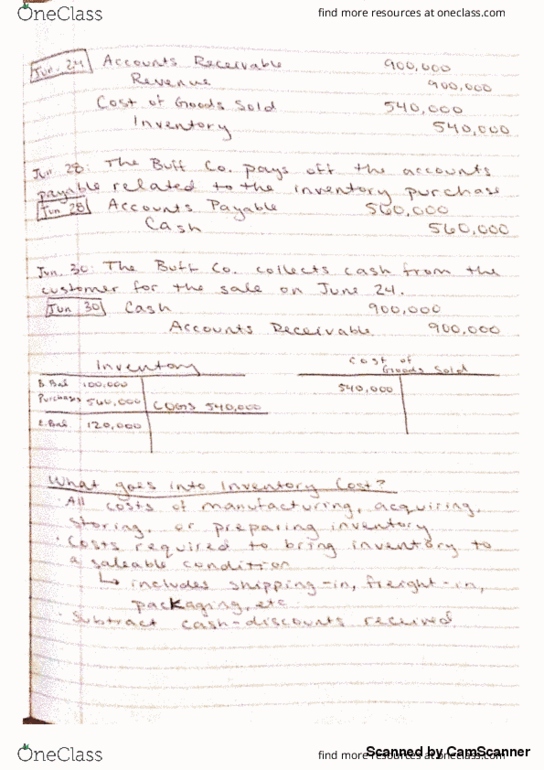 OneClass
find more resources at oneclass.com
Jun. 24 Accounts Receivable 900,000
Revenue 900,000
Cost of Goods Sold 540,000
Inventory 540,000
Jun 28: The Buff Co. pays off the accounts
payable related to the inventory purchase
Jun 28 Accounts Payable 560,000
Cash 560,000
Jun. 30: The Buff Co. collects cash from the
customer for the sale on June 24.
Jun 30 Cash 900,000
Accounts Receivable 900,000
Inventory
Cost of
Goods Sold
B. Bal 100,000
540,000
Purchases 560,000 COGS 540,000
E. Bal 120,000
What goes into Inventory Cost?
· All costs of manufacturing, acquiring,
storing, or preparing inventory
· Costs required to bring inventory to
a saleable condition
↳ includes shipping-in, freight-in,
packaging, etc.
· Subtract cash-discounts received.
OneClass
find more resources at oneclass.com
Scanned by CamScanner